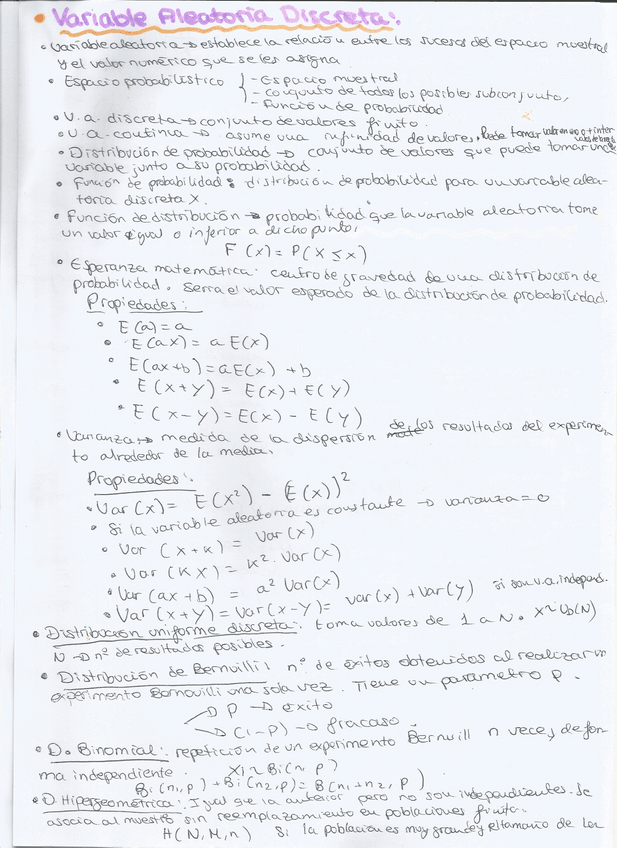 • Variable Aleatoria Discreta:.
• Variable aleatoria → establece la relación entre los sucesos del espacio muestral
y el valor numérico que se les asigna
• Espacio probabilístico { - Espacio muestral
- conjunto de todos los posibles subconjunto,
- Función de probabilidad
• V.a. discreta → conjunto de valores finito.
• V.a. continua → asume una infinidad de valores. Puede tomar valor en uno o + inter
valos de la recta
• Distribución de probabilidad → conjunto de valores que puede tomar una
variable junto a su probabilidad.
• Función de probabilidad: distribución de probabilidad para un variable alea-
toria discreta X.
• Función de distribución → probabilidad que la variable aleatoria tome
un valor igual o inferior a dicho punto,
F (x) = P(X ≤ x)
• Esperanza matemática: centro de gravedad de una distribución de
probabilidad. Serría el valor esperado de la distribución de probabilidad.
Propiedades:
• E(a) = a
• E(ax) = a E(x)
• E(ax+b) = aE(x) + b
• E(x+y) = E(x) + E(y)
• E(x-y) = E(x) - E(y)
• Varianza → medida de la dispersión de los resultados del experimen-
to alrededor de la media.
Propiedades:.
• Var(x) = E(x²) - (E(x))²
• Si la variable aleatoria es constante → varianza = 0
• Var (x+k) = Var(x)
• Var (KX) = K² · Var(x)
• Var (ax+b) = a² Var(x)
• Var(x+y) = Var(x-y) = Var(x) + Var(y) si son v.a. independ.
• Distribución uniforme discreta: toma valores de 1 a N. X~UD(N)
N → nº de resultados posibles.
• Distribución de Bernuilli: nº de éxitos obtenidos al realizar un
experimento Bornouilli una sola vez. Tiene un parámetro p.
→ P → éxito
→ (1-P) → fracaso.
• D. Binomial: repetición de un experimento Bernuill n veces, de for-
ma independiente. Xi~Bi(n, p)
Bi(n1, p) + Bi(n2, p) = B(n1+n2, p)
• D. Hipergeométrica:. Igual que la anterior pero no son independientes. Se
asocia al muestro sin reemplazamiento en poblaciones finito.
H(N, M, n) Si la población es muy grande y el tamaño de la